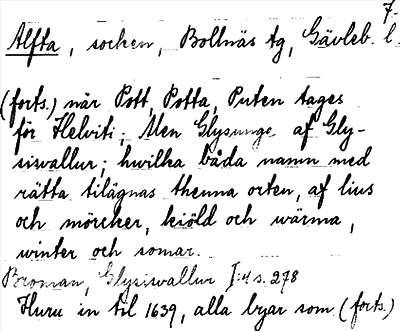 7.
Alfta, socken, Bollnäs tg, Gävleb. l.
(forts.) når Pott, Potta, Puten tages
för Helviti; Men Glysunge af Gly-
sisvallur; hwilka båda namn med
rätta tilägnas thenna orten, af lius
och mörcker, kiöld och wärma,
winter och somar.
Broman, Glysiswallur I:4 s. 278
Huru in til 1639, alla byar som (forts.)